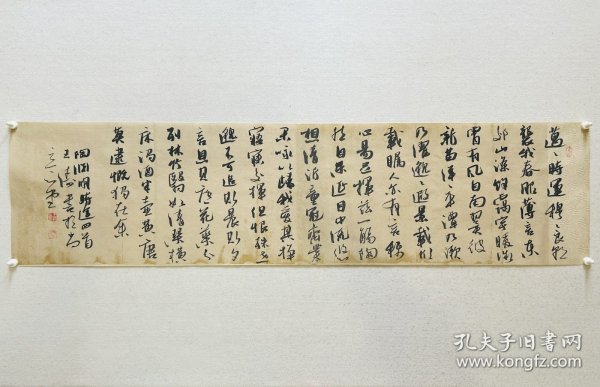 邁〻時運穆〻良朝
襲我春服薄言東
郊山滌餘靄宇曖微
霄有風自南翼彼
新苗洋〻平潭乃漱
乃濯邈〻遐景載欣
載矚人亦有言稱
心易足揮茲一觴陶
然自樂延目中流悠
想清沂童冠齊業
閑詠以歸我愛其靜
寤寐交揮但恨殊世
邈不可追斯晨斯夕
言息其廬花藥分
列林竹翳如清琴橫
床濁酒半壺黃唐
莫逮慨獨在余
陶淵明時運四首
孔夫子旧书网
www.kongfz.com